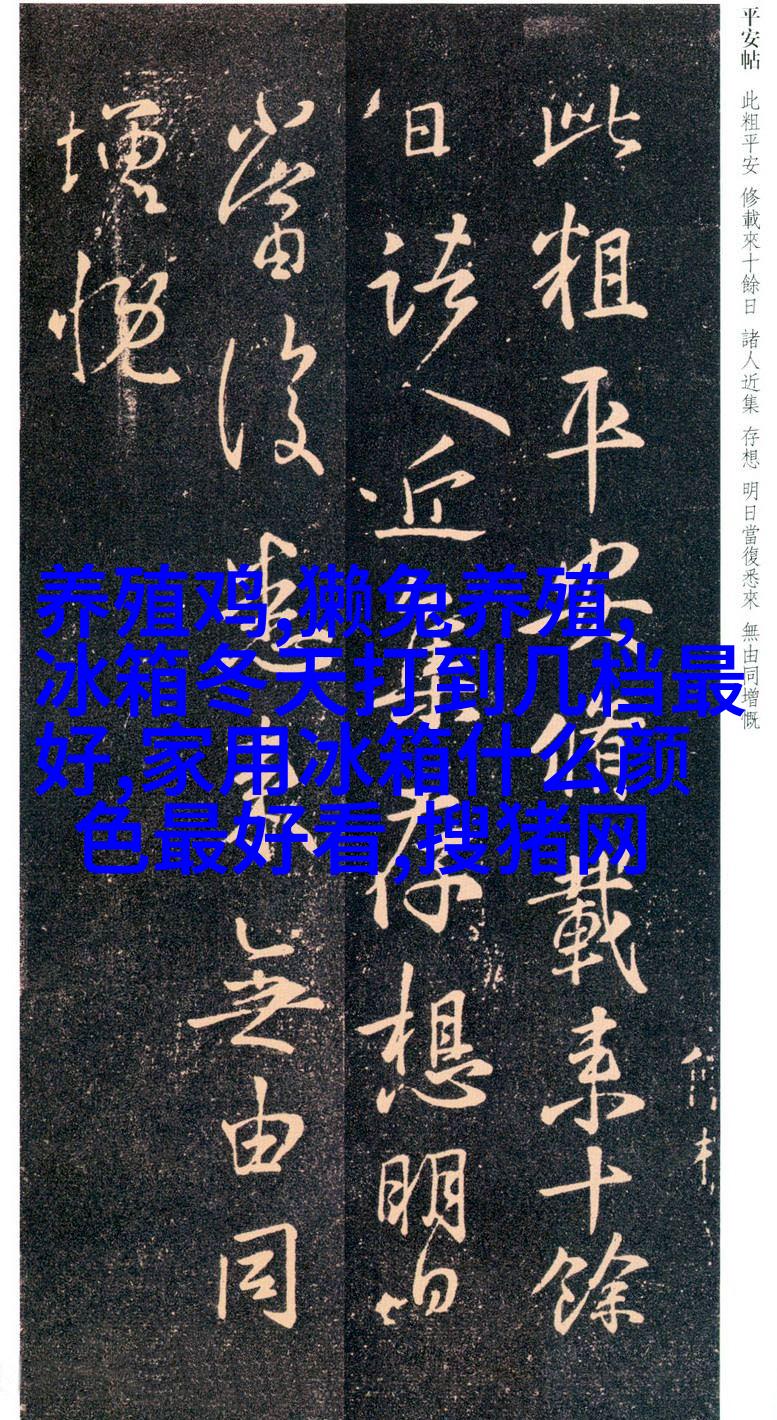 平安帖 此粗平安 修載來十餘日 諸人近集 存想 明日當復悉來 無由同增慨
此粗平安脩載来十餘
日諸人近集存想明日
當復悉来無由同
增慨
养殖鸡,獭兔养殖,
冰箱冬天打到几档最
好,家用冰箱什么颜
色最好看,搜猪网